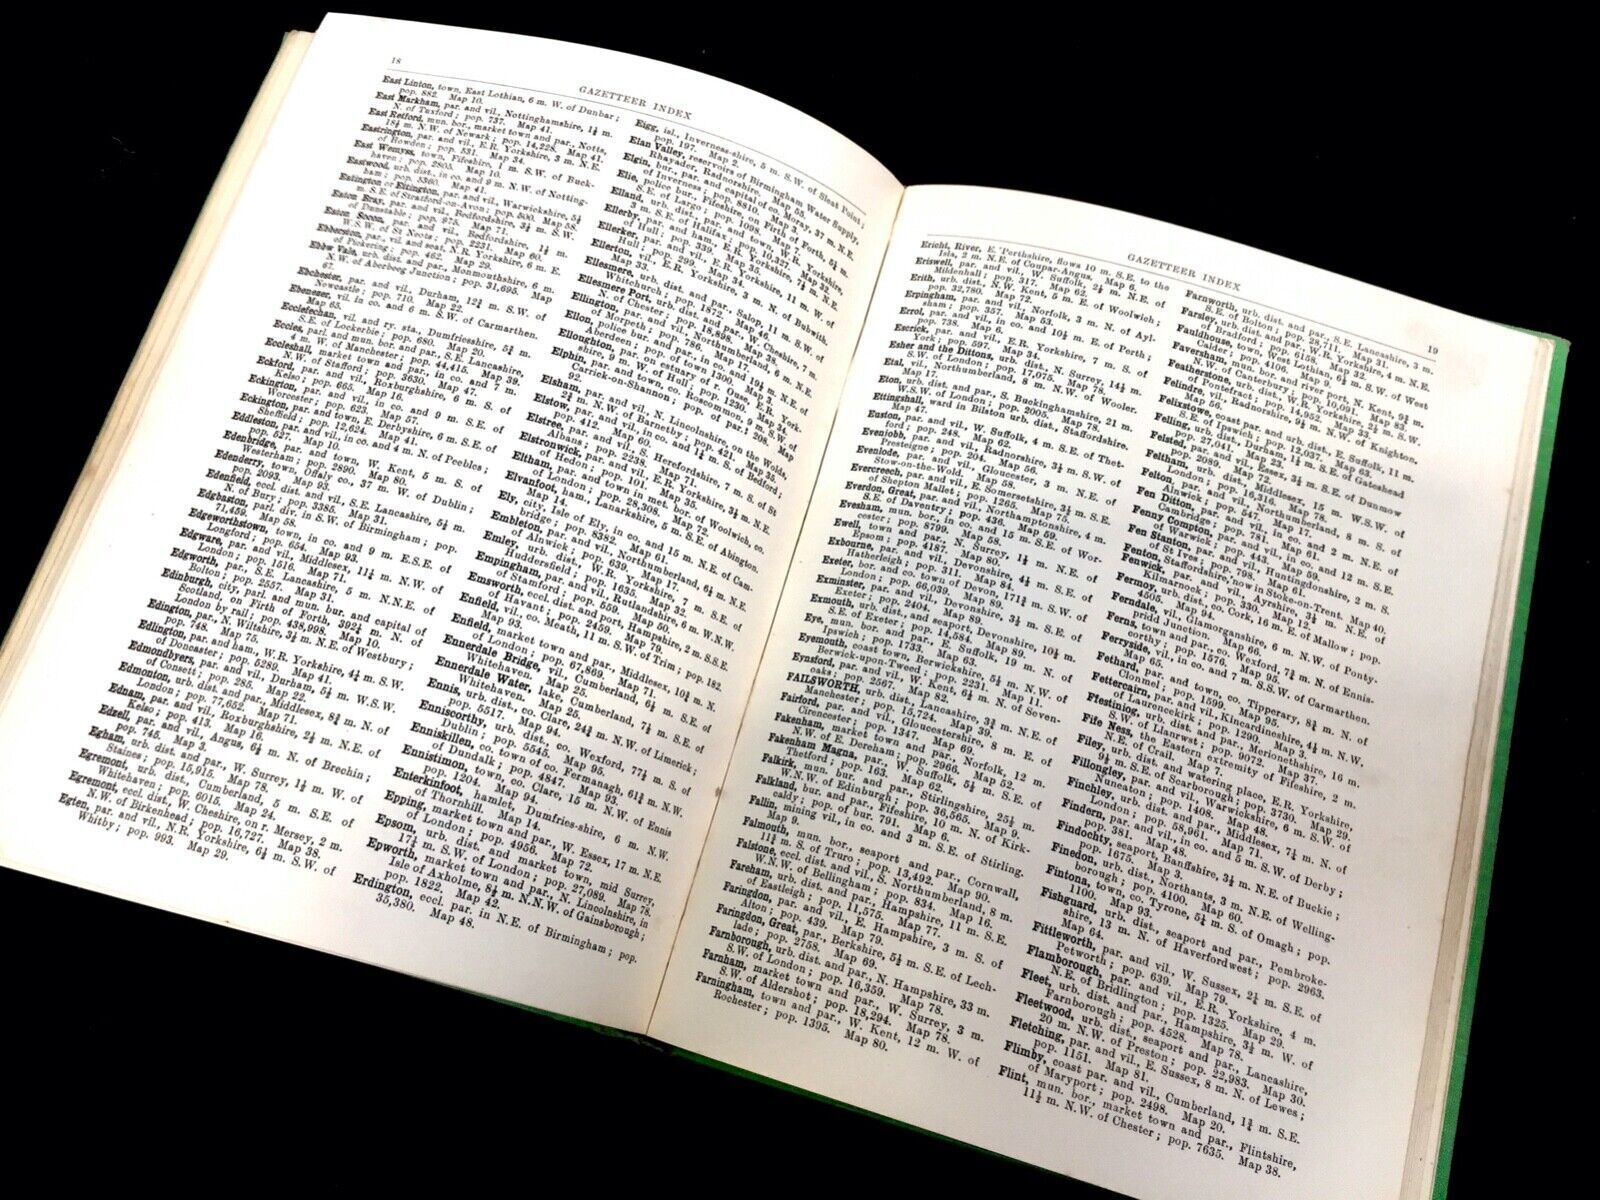 18
GAZETTEER INDEX
East Linton, town, East Lothian, 6 m. W. of Dunbar;
pop. 882. Map 10.
East Markham, par. and vil., Nottinghamshire, 1½ m.
N. of Tuxford; pop. 737. Map 41.
East Retford, mun. bor., market town and par., Notts,
18½ m. N.W. of Newark; pop. 14,228. Map 41.
Eastrington, par. and vil., E.R. Yorkshire, 3 m. N.E.
of Howden; pop. 531. Map 34.
East Wemyss, town, Fifeshire, 1 m. S.W. of Buck-
haven; pop. 2805. Map 10.
Eastwood, urb. dist., in co. and 9 m. N.W. of Notting-
ham; pop. 5360. Map 41.
Eatington or Ettington, par. and vil., Warwickshire, 5½
m. S.E. of Stratford-on-Avon; pop. 500. Map 58.
Eaton Bray, par. and vil., Bedfordshire, 3½ m. S.W.
of Dunstable; pop. 972. Map 71.
Eaton Socon, par. and vil., Bedfordshire, 1½ m.
W.S.W. of St Neots; pop. 2231. Map 60.
Ebberston, par., vil. and seat, N.R. Yorkshire, 6 m. E.
of Pickering; pop. 462. Map 29.
Ebbw Vale, urb. dist. and par., Monmouthshire, 6 m.
N.W. of Aberbeeg Junction; pop. 31,695. Map
67.
Ebchester, par. and vil., Durham, 12¾ m. S.W. of
Newcastle; pop. 710. Map 22.
Ebenezer, vil. in co. and 6 m. S.W. of Carmarthen.
Map 65.
Ecclefechan, vil. and ry. sta., Dumfriesshire, 5¾ m.
S.E. of Lockerbie; pop. 680. Map 20.
Eccles, parl. and mun. bor. and par., S.E. Lancashire,
4 m. W. of Manchester; pop. 44,415. Map 39.
Eccleshall, market town and par., in co. and 7 m.
N.W. of Stafford; pop. 3630. Map 47.
Eckford, par. and vil., Roxburghshire, 6 m. S. of
Kelso; pop. 665. Map 16.
Eckington, par. and vil., in co. and 9 m. S.E. of
Worcester; pop. 623. Map 57.
Eckington, par. and town, E. Derbyshire, 6 m. S.E. of
Sheffield; pop. 12,624. Map 41.
Eddleston, par. and vil., in co. and 4 m. N. of Peebles;
pop. 527. Map 10.
Edenbridge, par. and town, W. Kent, 5 m. S. of
Westerham; pop. 2890. Map 80.
Edenderry, town, Offaly co., 37 m. W. of Dublin;
pop. 2093. Map 93.
Edenfield, eccl. dist. and vil., S.E. Lancashire, 5½ m.
N. of Bury; pop. 3385. Map 31.
Edgbaston, parl. div. in S.W. of Birmingham; pop.
71,459. Map 58.
Edgeworthstown, town, in co. and 9 m. E.S.E. of
Longford; pop. 654. Map 93.
Edgware, par. and vil., Middlesex, 11¼ m. N.W. of
London; pop. 1516. Map 71.
Edgworth, par., S.E. Lancashire, 5 m. N.N.E. of
Bolton; pop. 2552. Map 31.
Edinburgh, city, parl. and mun. bur. and capital of
Scotland, on Firth of Forth, 392½ m. N. of
London by rail; pop. 438,998. Map 10.
Edington, par. and vil., N. Wiltshire, 3½ m. E. of Westbury;
pop. 748. Map 75.
Edlington, par. and ham., W.R. Yorkshire, 4½ m. S.W.
Doncaster; pop. 5289. Map 41.
Edmondbyers, par. and vil., Durham, 5½ m. W.S.W.
of Consett; pop. 285. Map 22.
Edmonton, urb. dist. and par., Middlesex, 8¾ m. N. of
London; pop. 77,652. Map 71.
Ednam, par. and vil., Roxburghshire, 2¼ m. N.E. of
Kelso; pop. 413. Map 16.
Edzell, par. and vil., Angus, 6½ m. N. of Brechin;
pop. 745. Map 3.
Egham, urb. dist. and par., W. Surrey, 1½ m. W. of
Staines; pop. 15,915. Map 78.
Egremont, urb. dist., Cumberland, 5 m. S.E. of
Whitehaven; pop. 6015. Map 24.
Egremont, eccl. dist., W. Cheshire, on r. Mersey, 2 m.
N.W. of Birkenhead; pop. 16,727. Map 38.
Egton, par. and vil., N.R. Yorkshire, 6½ m. S.W. of
Whitby; pop. 993. Map 29.
Eigg, isl., Inverness-shire, 5 m. S.W. of Sleat Point;
pop. 197. Map 2.
Elan Valley, reservoirs of Birmingham Water Supply,
Rhayader, Radnorshire. Map 55.
Elgin, bur., par. and capital of co. Moray, 37 m. N.E.
of Inverness; pop. 8810. Map 3.
Elie, police bur., Fifeshire, on Firth of Forth, 5½ m.
S.E. of Largo; pop. 1098. Map 7.
Elland, urb. dist., par. and town, W.R. Yorkshire,
3 m. S.E. of Halifax; pop. 10,327. Map 32.
Ellerby, par. and ham., E.R. Yorkshire, 7½ m. N.E.
of Hull; pop. 339. Map 35.
Ellerker, par. and vil., E.R. Yorkshire, 11 m. W. of
Hull; pop. 299. Map 34.
Ellerton, par. and vil., E.R. Yorkshire, 3 m. N. of Bubwith.
Map 33.
Ellesmere, urb. dist. and par., Salop, 11 m. S.W. of
Whitchurch; pop. 1872. Map 46.
Ellesmere Port, urb. dist., W. Cheshire, 7 m.
N. of Chester; pop. 18,898. Map 38.
Ellington, par. and vil., Northumberland, 6 m. N.E.
of Morpeth; pop. 786. Map 17.
Ellon, police bur. and par., in co. and 19½ m. N. of
Aberdeen; pop. 1300. Map 3.
Elloughton, par. on estuary of r. Ouse, E.R. York-
shire, 9 m. W. of Hull; pop. 1230. Map 34.
Elphin, par. and town, co. Roscommon, 9 m. S.W. of
Carrick-on-Shannon; pop. of par. 208. Map
92.
Elsham, par. and vil., N. Lincolnshire, on the Wolds,
2¾ m. N.W. of Barnetby; pop. 421. Map 35.
Elstow, par. and vil., in co. and 1½ m. S. of Bedford;
pop. 412. Map 60.
Elstree, par. and vil., S. Herefordshire, 7 m. S. of St
Albans; pop. 2238. Map 71.
Elstronwick, par. and vil., E.R. Yorkshire, 3½ m. N.E.
of Hedon; pop. 101. Map 35.
Eltham, par. and town in met. bor. of Woolwich, co.
London; pop. 28,308. Map 78.
Elvanfoot, ham., Lanarkshire, 5 m. S.E. of Abington.
Map 14.
Ely, city, Isle of Ely, in co. and 15 m. N.E. of Cam-
bridge; pop. 8382. Map 61.
Embleton, par. and vil., Northumberland, 6½ m. N.E.
of Alnwick; pop. 639. Map 17.
Emley, urb. dist., W.R. Yorkshire, 7 m. S.E. of
Huddersfield; pop. 1635. Map 32.
Empingham, par. and vil., Rutlandshire, 6 m. W.N.W.
of Stamford; pop. 559. Map 50.
Emsworth, eccl. dist. and port, Hampshire, 2 m. S.S.E.
of Havant; pop. 2457. Map 79.
Enfield, vil., co. Meath, 11 m. S.W. of Trim; pop. 182.
Map 93.
Enfield, market town and par., Middlesex, 10¾ m. N.
of London; pop. 67,869. Map 71.
Ennerdale Bridge, vil., Cumberland, 6½ m. S.E. of
Whitehaven. Map 25.
Ennerdale Water, lake, Cumberland, 7½ m. S.E. of
Whitehaven. Map 25.
Ennis, urb. dist., co. Clare, 24½ m. N.W. of Limerick;
pop. 5517. Map 94.
Enniscorthy, urb. dist., co. Wexford, 77½ m. S. of
Dublin; pop. 5545. Map 95.
Enniskillen, town, co. Fermanagh, 61½ m. N.W.
of Dundalk; pop. 4847. Map 93.
Ennistimon, town, co. Clare, 15 m. N.W. of Ennis
pop. 1204. Map 94.
Enterkinfoot, hamlet, Dumfries-shire, 6 m. N.W.
of Thornhill. Map 14.
Epping, market town and par., W. Essex, 17 m. N.E.
of London; pop. 4956. Map 72.
Epsom, urb. dist. and market town, mid Surrey,
7¼ m. S.W. of London; pop. 27,089. Map 78.
Epworth, market town and par., N. Lincolnshire, in
Isle of Axholme, 8½ m. N.N.W. of Gainsborough;
pop. 1822. Map 42.
Erdington, eccl. par. in N.E. of Birmingham; pop.
35,380. Map 48.
GAZETTEER INDEX
19
Ericht, River, E. Perthshire, flows 10 m. S.E. to the
Isla, 2 m. N.E. of Coupar-Angus. Map 6.
Eriswell, par. and vil., W. Suffolk, 2½ m. N.E. of
Mildenhall; pop. 317. Map 62.
Erith, urb. dist., N.W. Kent, 5 m. E. of Woolwich;
pop. 32,780. Map 72.
Erpingham, par. and vil., Norfolk, 3 m. N. of Ayl-
sham; pop. 357. Map 53.
Errol, par. and vil. in co. and 10½ m. E. of Perth;
pop. 738. Map 6.
Escrick, par. and vil., E.R. Yorkshire, 7 m. S. of
York; pop. 597. Map 34.
Esher and the Dittons, urb. dist., N. Surrey, 14½ m.
S.W. of London; pop. 17,075. Map 78.
Etal, vil., Northumberland, 8 m. N.W. of Wooler.
Map 17.
Eton, urb. dist. and par., S. Buckinghamshire, 21 m.
W.S.W. of London; pop. 2005. Map 78.
Ettingshall, ward in Bilston urb. dist., Staffordshire.
Map 47.
Euston, par. and vil., W. Suffolk, 4 m. S.E. of Thet-
ford; pop. 248. Map 62.
Evenjobb, par. and vil., Radnorshire, 3½ m. S.W. of
Presteigne; pop. 204. Map 56.
Evenlode, par. and vil., Gloucester, 3 m. N.E. of
Stow-on-the-Wold. Map 58.
Evercreech, par. and vil., E. Somersetshire, 3½ m. S.E.
of Shepton Mallet; pop. 1265. Map 75.
Everdon, Great, par. and vil., Northamptonshire, 4 m.
S.E. of Daventry; pop. 436. Map 59.
Evesham, mun. bor., in co. and 15 m. S.E. of Wor-
cester; pop. 8799. Map 58.
Ewell, town and par., N. Surrey, 1½ m. N.E. of
Epsom; pop. 4187. Map 78.
Exbourne, par. and vil., Devonshire, 4½ m. S.E. of
Hatherleigh; pop. 317. Map 84.
Exeter, bor. and co. town of Devon, 171¾ m. S.W. of
London; pop. 66,039. Map 89.
Exminster, par. and vil., Devonshire, 3¾ m. S.E. of
Exeter; pop. 2404. Map 89.
Exmouth, urb. dist. and seaport, Devonshire, 10½ m.
S.E. of Exeter; pop. 14,584. Map 89.
Eye, mun. bor. and par., E. Suffolk, 19 m. N. of
Ipswich; pop. 1733. Map 63.
Eyemouth, coast town, Berwickshire, 5½ m. N.W. of
Berwick-upon-Tweed; pop. 2231. Map 11.
Eynsford, par. and vil., W. Kent, 6½ m. N. of Seven-
oaks; pop. 2567. Map 82.
FAILSWORTH, urb. dist., Lancashire, 3¾ m. N.E. of
Manchester; pop. 15,724. Map 39.
Fairford, par. and vil., Gloucestershire, 8 m. E. of
Cirencester; pop. 1347. Map 69.
Fakenham, market town and par., Norfolk, 12 m.
N.W. of E. Dereham; pop. 2966. Map 52.
Fakenham Magna, par., W. Suffolk, 5½ m. S.E. of
Thetford; pop. 163. Map 62.
Falkirk, mun. bur. and par., Stirlingshire, 25½ m.
W.N.W. of Edinburgh; pop. 36,565. Map 9.
Falkland, bur. and par., Fifeshire, 10 m. N. of Kirk-
caldy; pop. of bur. 791. Map 6.
Fallin, mining vil., in co. and 3 m. S.E. of Stirling.
Map 9.
Falmouth, mun. bor., seaport and par., Cornwall,
11¾ m. S. of Truro; pop. 13,492. Map 90.
Falstone, eccl. dist. and vil., S. Northumberland, 8 m.
W.N.W. of Bellingham; pop. 834. Map 16.
Fareham, urb. dist. and par., Hampshire, 11 m. S.E.
of Eastleigh; pop. 11,575. Map 77.
Faringdon, par. and vil., E. Hampshire, 3 m. S. of
Alton; pop. 439. Map 79.
Faringdon, Great, par., Berkshire, 5½ m. S.E. of Lech-
lade; pop. 2758. Map 69.
Farnborough, urb. dist. and par., N. Hampshire, 33 m.
S.W. of London; pop. 16,359. Map 78.
Farnham, market town and par., W. Surrey, 3 m.
S.W. of Aldershot; pop. 18,294. Map 78.
Farningham, town and par., W. Kent, 12 m. W. of
Rochester; pop. 1395. Map 80.
Farnworth, urb. dist. and par., S.E. Lancashire, 3 m.
S.E. of Bolton; pop. 28,711. Map 31.
Farsley, urb. dist. and par., W.R. Yorkshire, 4 m. N.E.
of Bradford; pop. 6158. Map 32.
Fauldhouse, town, West Lothian, 6½ m. S.W. of West
Calder; pop. 4106. Map 9.
Faversham, town, mun. bor. and port, N. Kent, 9½ m.
W. of Canterbury; pop. 10,091. Map 83.
Featherstone, urb. dist. and par., W.R. Yorkshire, 2½ m. S.W.
of Pontefract; pop. 14,952. Map 33.
Felindre, vil., Radnorshire, 9½ m. N.W. of Knighton.
Map 56.
Felixstowe, coast par. and urb. dist., E. Suffolk, 11 m.
S.E. of Ipswich; pop. 12,037. Map 63.
Felling, urb. dist., Durham, 1½ m. S.E. of Gateshead
pop. 27,041. Map 23.
Felsted, par. and vil., Essex, 3½ m. S.E. of Dunmow
pop. 2089. Map 72.
Feltham, urb. dist., Middlesex, 15 m. W.S.W. of
London; pop. 16,316. Map 78.
Felton, par. and vil., Northumberland, 8 m. S. of
Alnwick; pop. 547. Map 17.
Fen Ditton, par. and vil., in co. and 2 m. N.E. of
Cambridge; pop. 781. Map 61.
Fenny Compton, par. and vil., in co. and 12 m. S.E.
of Warwick; pop. 443. Map 59.
Fen Stanton, par. and vil., Huntingdonshire, 2 m. S.
of St Ives; pop. 798. Map 61.
Fenton, par. and town in Stoke-on-Trent, Map 40.
Fenwick, par. and vil., Ayrshire, 3½ m. N.E. of
Kilmarnock; pop. 330. Map 12.
Fermoy, urb. dist., co. Cork, 16 m. E. of Mallow; pop.
4505. Map 94.
Ferndale, vil., Glamorganshire, 6 m. N.W. of Ponty-
pridd Junction. Map 66.
Ferns, town and par., co. Wexford, 7½ m. N. of Ennis-
corthy; pop. 1576. Map 95.
Ferryside, vil., in co. and 7 m. S.S.W. of Carmarthen.
Map 65.
Fethard, par. and town, co. Tipperary, 8¾ m. N. of
Clonmel; pop. 1599. Map 95.
Fettercairn, par. and vil., Kincardineshire, 4½ m. N.W.
of Laurencekirk; pop. 1290. Map 3.
Ffestiniog, urb. dist. and par., Merionethshire, 16 m.
S.W. of Llanrwst; pop. 9072. Map 37.
Fife Ness, the Eastern extremity of Fifeshire, 2 m.
N.E. of Crail. Map 7.
Filey, urb. dist. and watering place, E.R. Yorkshire,
9½ m. S.E. of Scarborough; pop. 3730. Map 29.
Fillongley, par. and vil., Warwickshire, 6 m. S.W. of
Nuneaton; pop. 1408. Map 48.
Finchley, urb. dist. and par., Middlesex, 7½ m. N. of
London; pop. 58,961. Map 71.
Findern, par. and vil., in co. and 5 m. S.W. of Derby;
pop. 381. Map 48.
Findochty, seaport, Banffshire, 3½ m. N.E. of Buckie;
pop. 1675. Map 3.
Finedon, urb. dist., Northants, 3 m. N.E. of Welling-
borough; pop. 4100. Map 60.
Fintona, town, co. Tyrone, 5½ m. S. of Omagh; pop.
1100. Map 93.
Fishguard, urb. dist., seaport and par., Pembroke-
shire, 13 m. N. of Haverfordwest; pop. 2963.
Map 64.
Fittleworth, par. and vil., W. Sussex, 2½ m. S.E. of
Petworth; pop. 639. Map 79.
Flamborough, par. and vil., E.R. Yorkshire, 4 m.
N.E. of Bridlington; pop. 1325. Map 29.
Fleet, urb. dist. and par., Hampshire, 3½ m. W. of
Farnborough; pop. 4528. Map 78.
Fleetwood, urb. dist., seaport and par., Lancashire,
20 m. N.W. of Preston; pop. 22,983. Map 30.
Fletching, par. and vil., E. Sussex, 8 m. N. of Lewes;
pop. 1151. Map 81.
Flimby, coast par. and vil., Cumberland, 1¾ m. S.E.
of Maryport; pop. 2498. Map 20.
Flint, mun. bor., market town and par., Flintshire,
11½ m. N.W. of Chester; pop. 7635. Map 38.